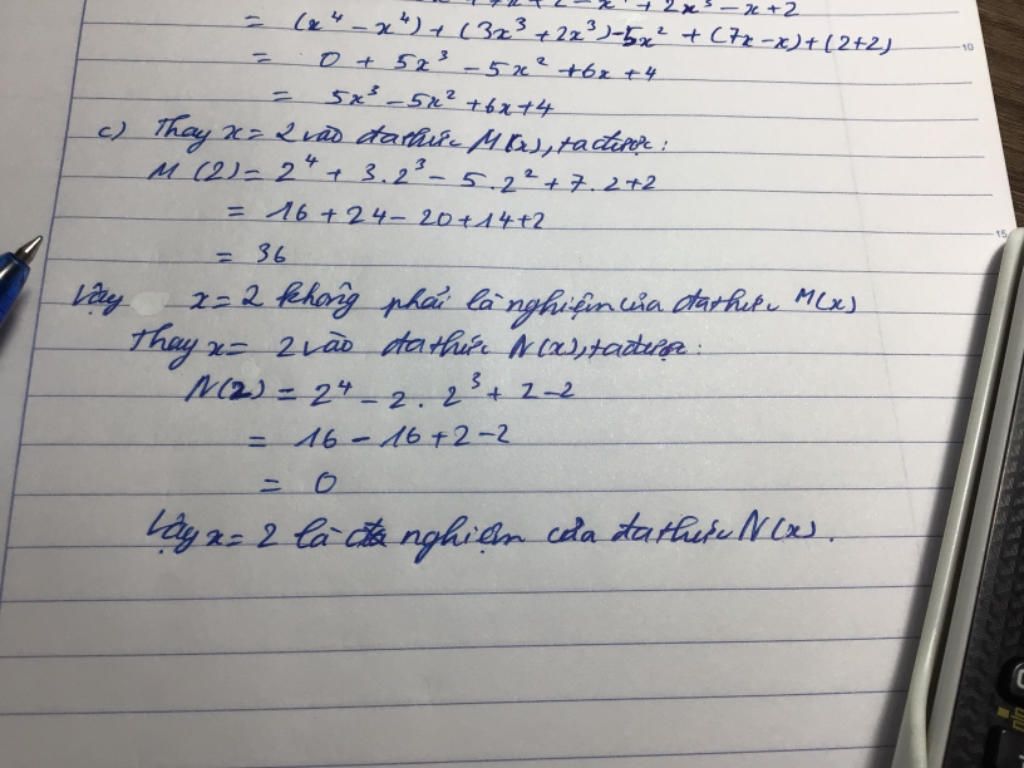 + 2x³ - x + 2
= (x⁴ - x⁴) + (3x³ + 2x³) - 5x² + (7x - x) + (2+2)
= 0 + 5x³ - 5x² + 6x + 4
= 5x³ - 5x² + 6x + 4
c) Thay x = 2 vào đa thức M(x), ta được:
M(2) = 2⁴ + 3.2³ - 5.2² + 7.2 + 2
= 16 + 24 - 20 + 14 + 2
= 36
Vậy x = 2 không phải là nghiệm của đa thức M(x)
Thay x = 2 vào đa thức N(x), ta được:
N(2) = 2⁴ - 2.2³ + 2 - 2
= 16 - 16 + 2 - 2
= 0
Vậy x = 2 là nghiệm của đa thức N(x).
10
15